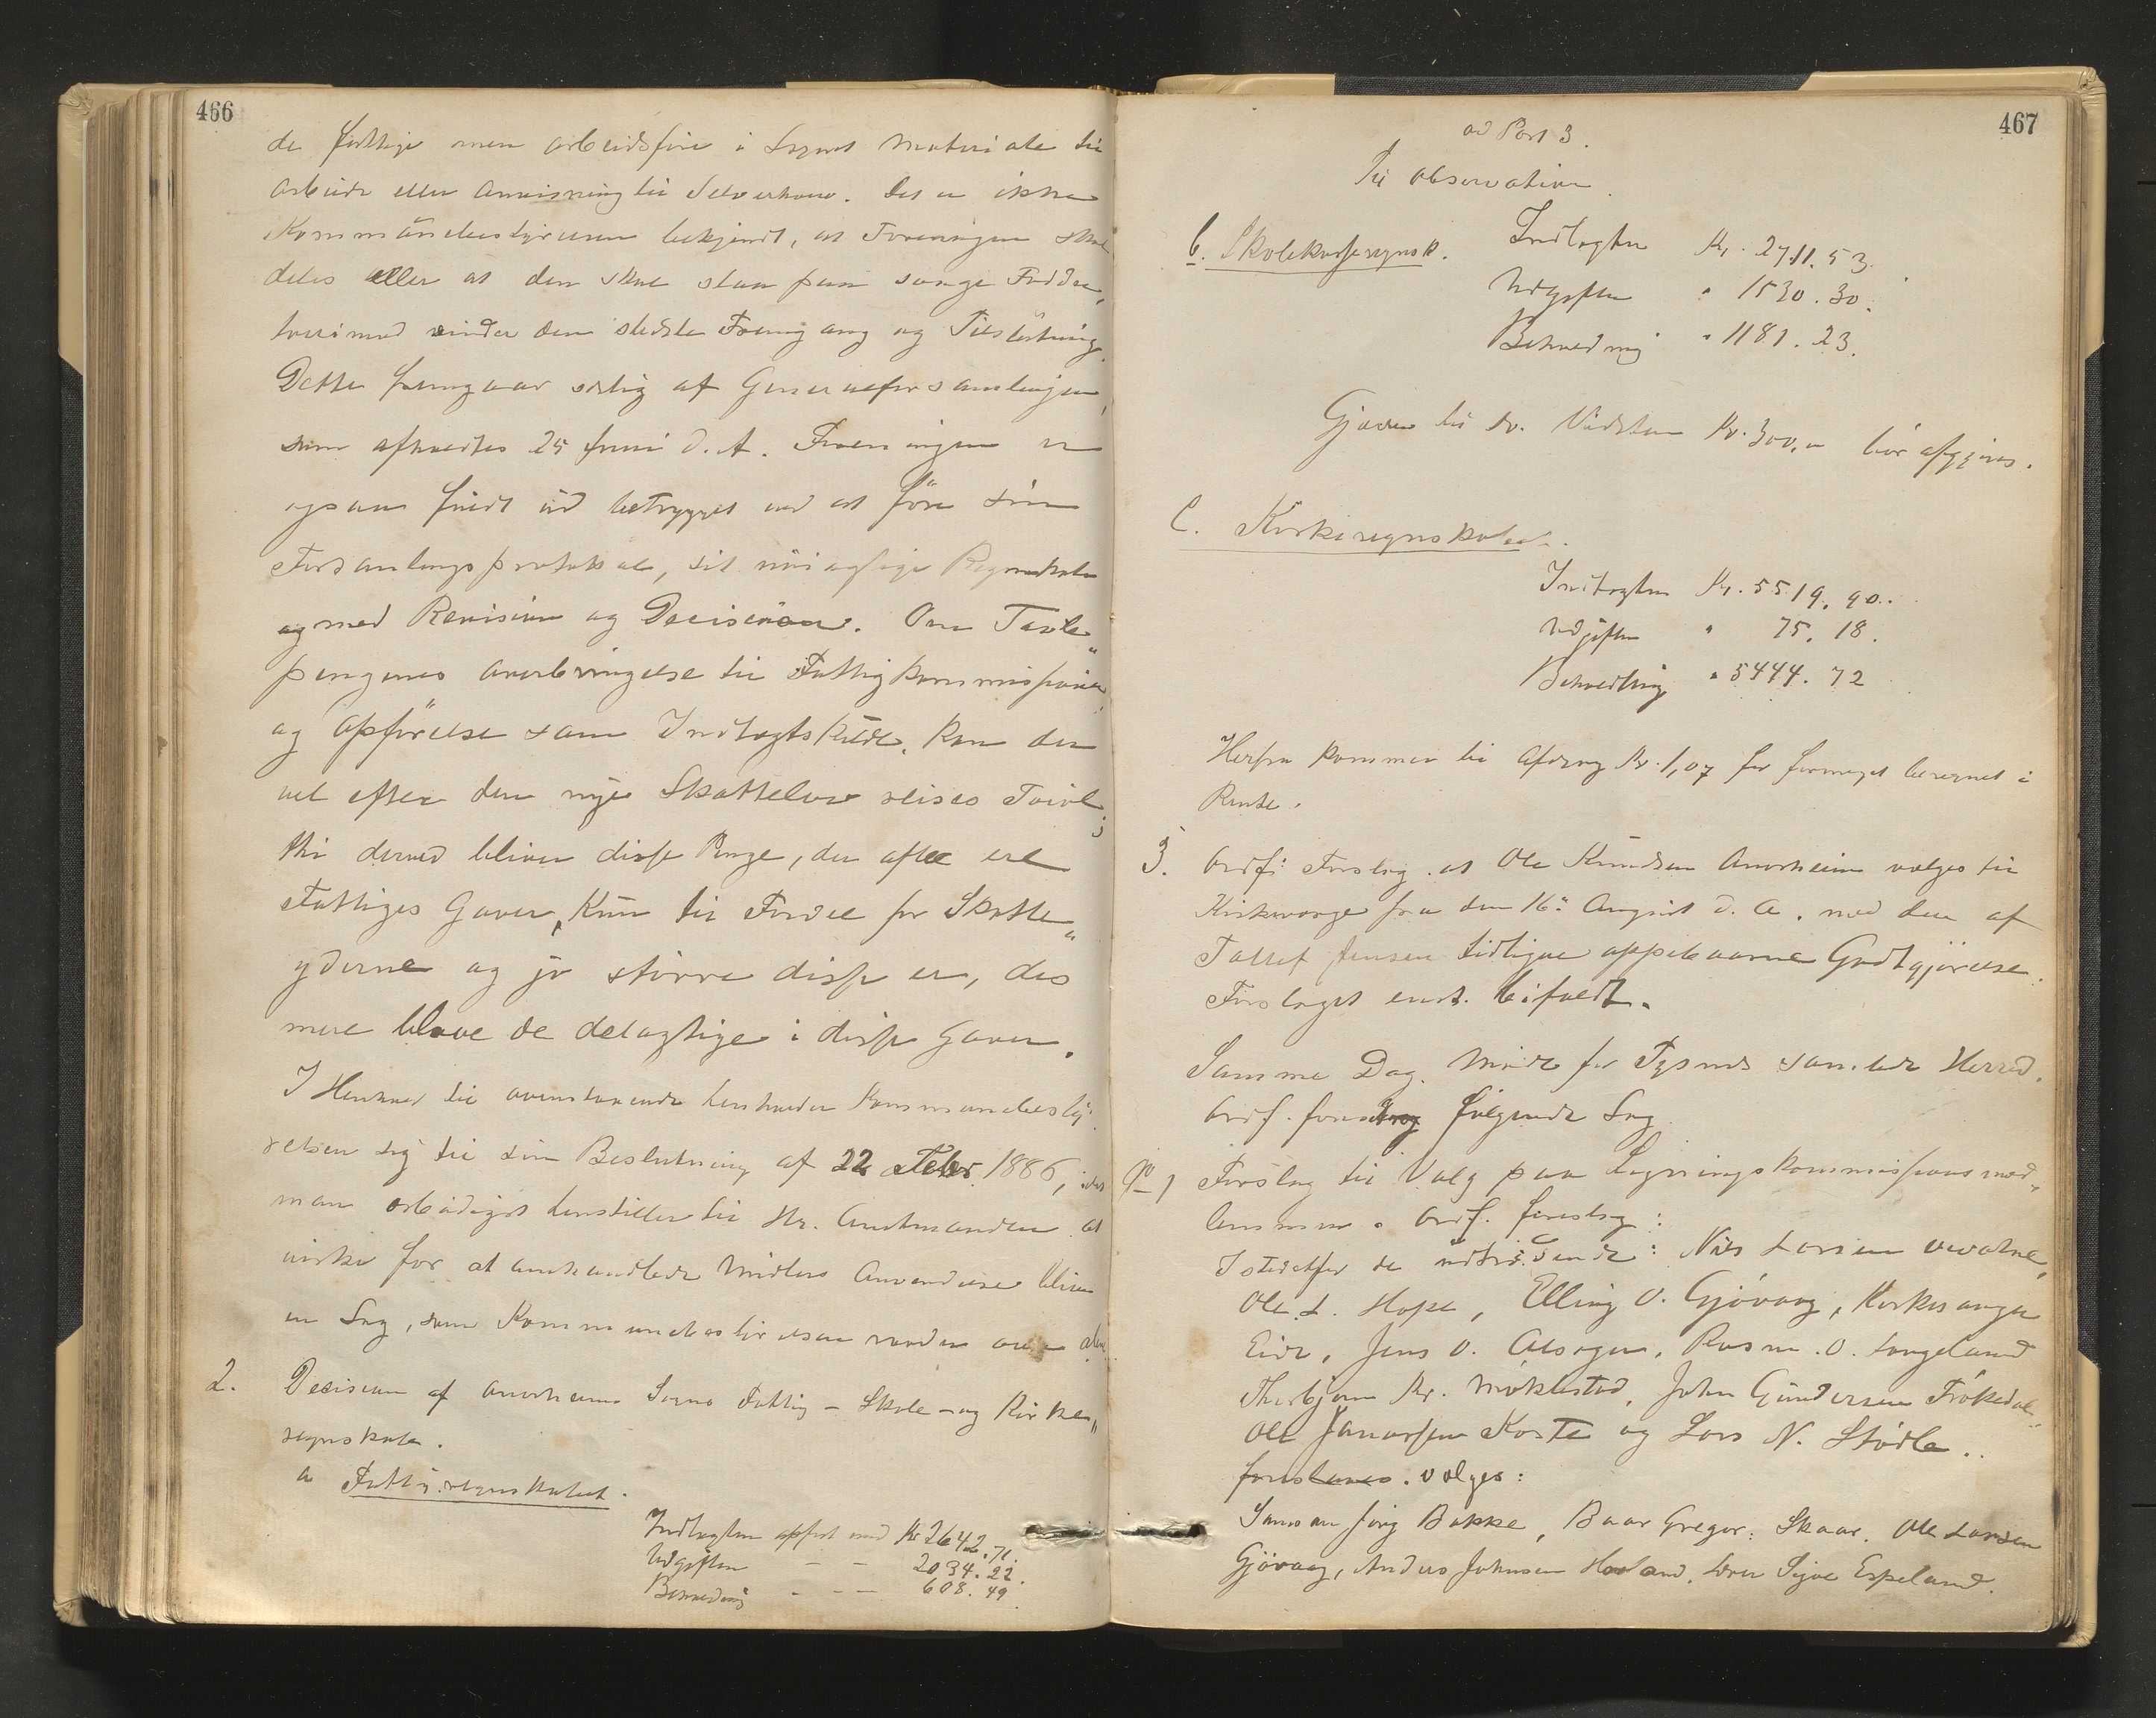 466
de fattige men arbeidsföre i Sognet Materiale til
Arbeide eller Anvisning til Selverhverv. Det er ikke
Kommünebestyrelsen bekjendt, at Foreningen skal
deles eller at den skal staa paa svage Födder,
tverimod vinder den stedse Fremgang og Tilslutning.
Dette fremgaar særlig af Generalforsamlingen,
som afholdtes 25 Juni d. A. Foreningen er
ogsaa fuldt ud betrygget ved at före sin
Forsamlingsprotokol, sit nöiagtige Regnskab
og med Revision og Decision. Om Tavle„
pengenes Overbringelse til Fattigkommissionen
og Opförelse som Indtægtskilde, kan der
vel efter den nye Skattelov reises Tvivl;
thi derved bliver disse Penge, der ofte ere
Fattiges Gaver, kün til Fordel for Skatte„
yderne og jo större disse er, des
mere blive de delagtige i disse Gaver.
I Henhold til ovenstaaende henholder Kommunebesty„
relsen sig til sin Beslutning af 22 Febr. 1886, idet
man ærbödigst henstiller til Hr. Amtmanden at
virke for at omhandlede Midlers Anvendelse bliver
en Sag, som Kommunebestÿrelsen raader over alene.
2. Decision af Aarheims Sogns Fattig – Skole – og Kirke„
regnskab.
a Fattigregnskabet.
Indtægten opfört med Kr 2642.71.
Udgiften – – 2034.22.
Beholdning – – – 608.49.
467
ad Post 3.
Til Observation.
b. Skolekasseregnsk. Indtægten Kr. 2711.53.
Udgiften " 1530.30.
Beholdning " 1181.23.
Gjælden til Kr. 300,00 bör afgjöres.
C. Kirkeregnskabet.
Indtægten Kr. 5519.90.
Udgiften " 75.18.
Beholdning " 5444.72
Herfra kommer til Afdrag Kr. 1,07 for formeget beregnet i
Rente.
3. Ordf: Forslag. at Ole Knüdsen Aarheim vælges til
Kirkeværge fra den 16de August d. A. mod den af
Tollef Jensen tidligere oppebaarne Godtgjörelse.
Forslaget enst. bifaldt.
Samme Dag. Möde for Tysnes samlede Herred.
Ordf. foredrog fölgende Sag
No 1 Forslag til Valg paa Ligningskommissionsmed„
lemmer. Ordf. foreslog:
Istedetfor de udtrædende: Nils Larsen Uvatne,
Ole L. Hope, Elling O. Gjövaag, Kirkesanger
Eide, Jens O. Alsager, Rasm. O. Langeland
Thorbjörn Kr. Möklestad, John Gündersen Frökedal„
Ole Janassen Koste og Lars N. Stödle.
foreslaaes. vælges:
Samson Jörg Bakke, Baar Gregor: Skaar. Ole Larsen
Gjövaag, Anders Johnsen Hovland, Lærer Sjur Espeland.